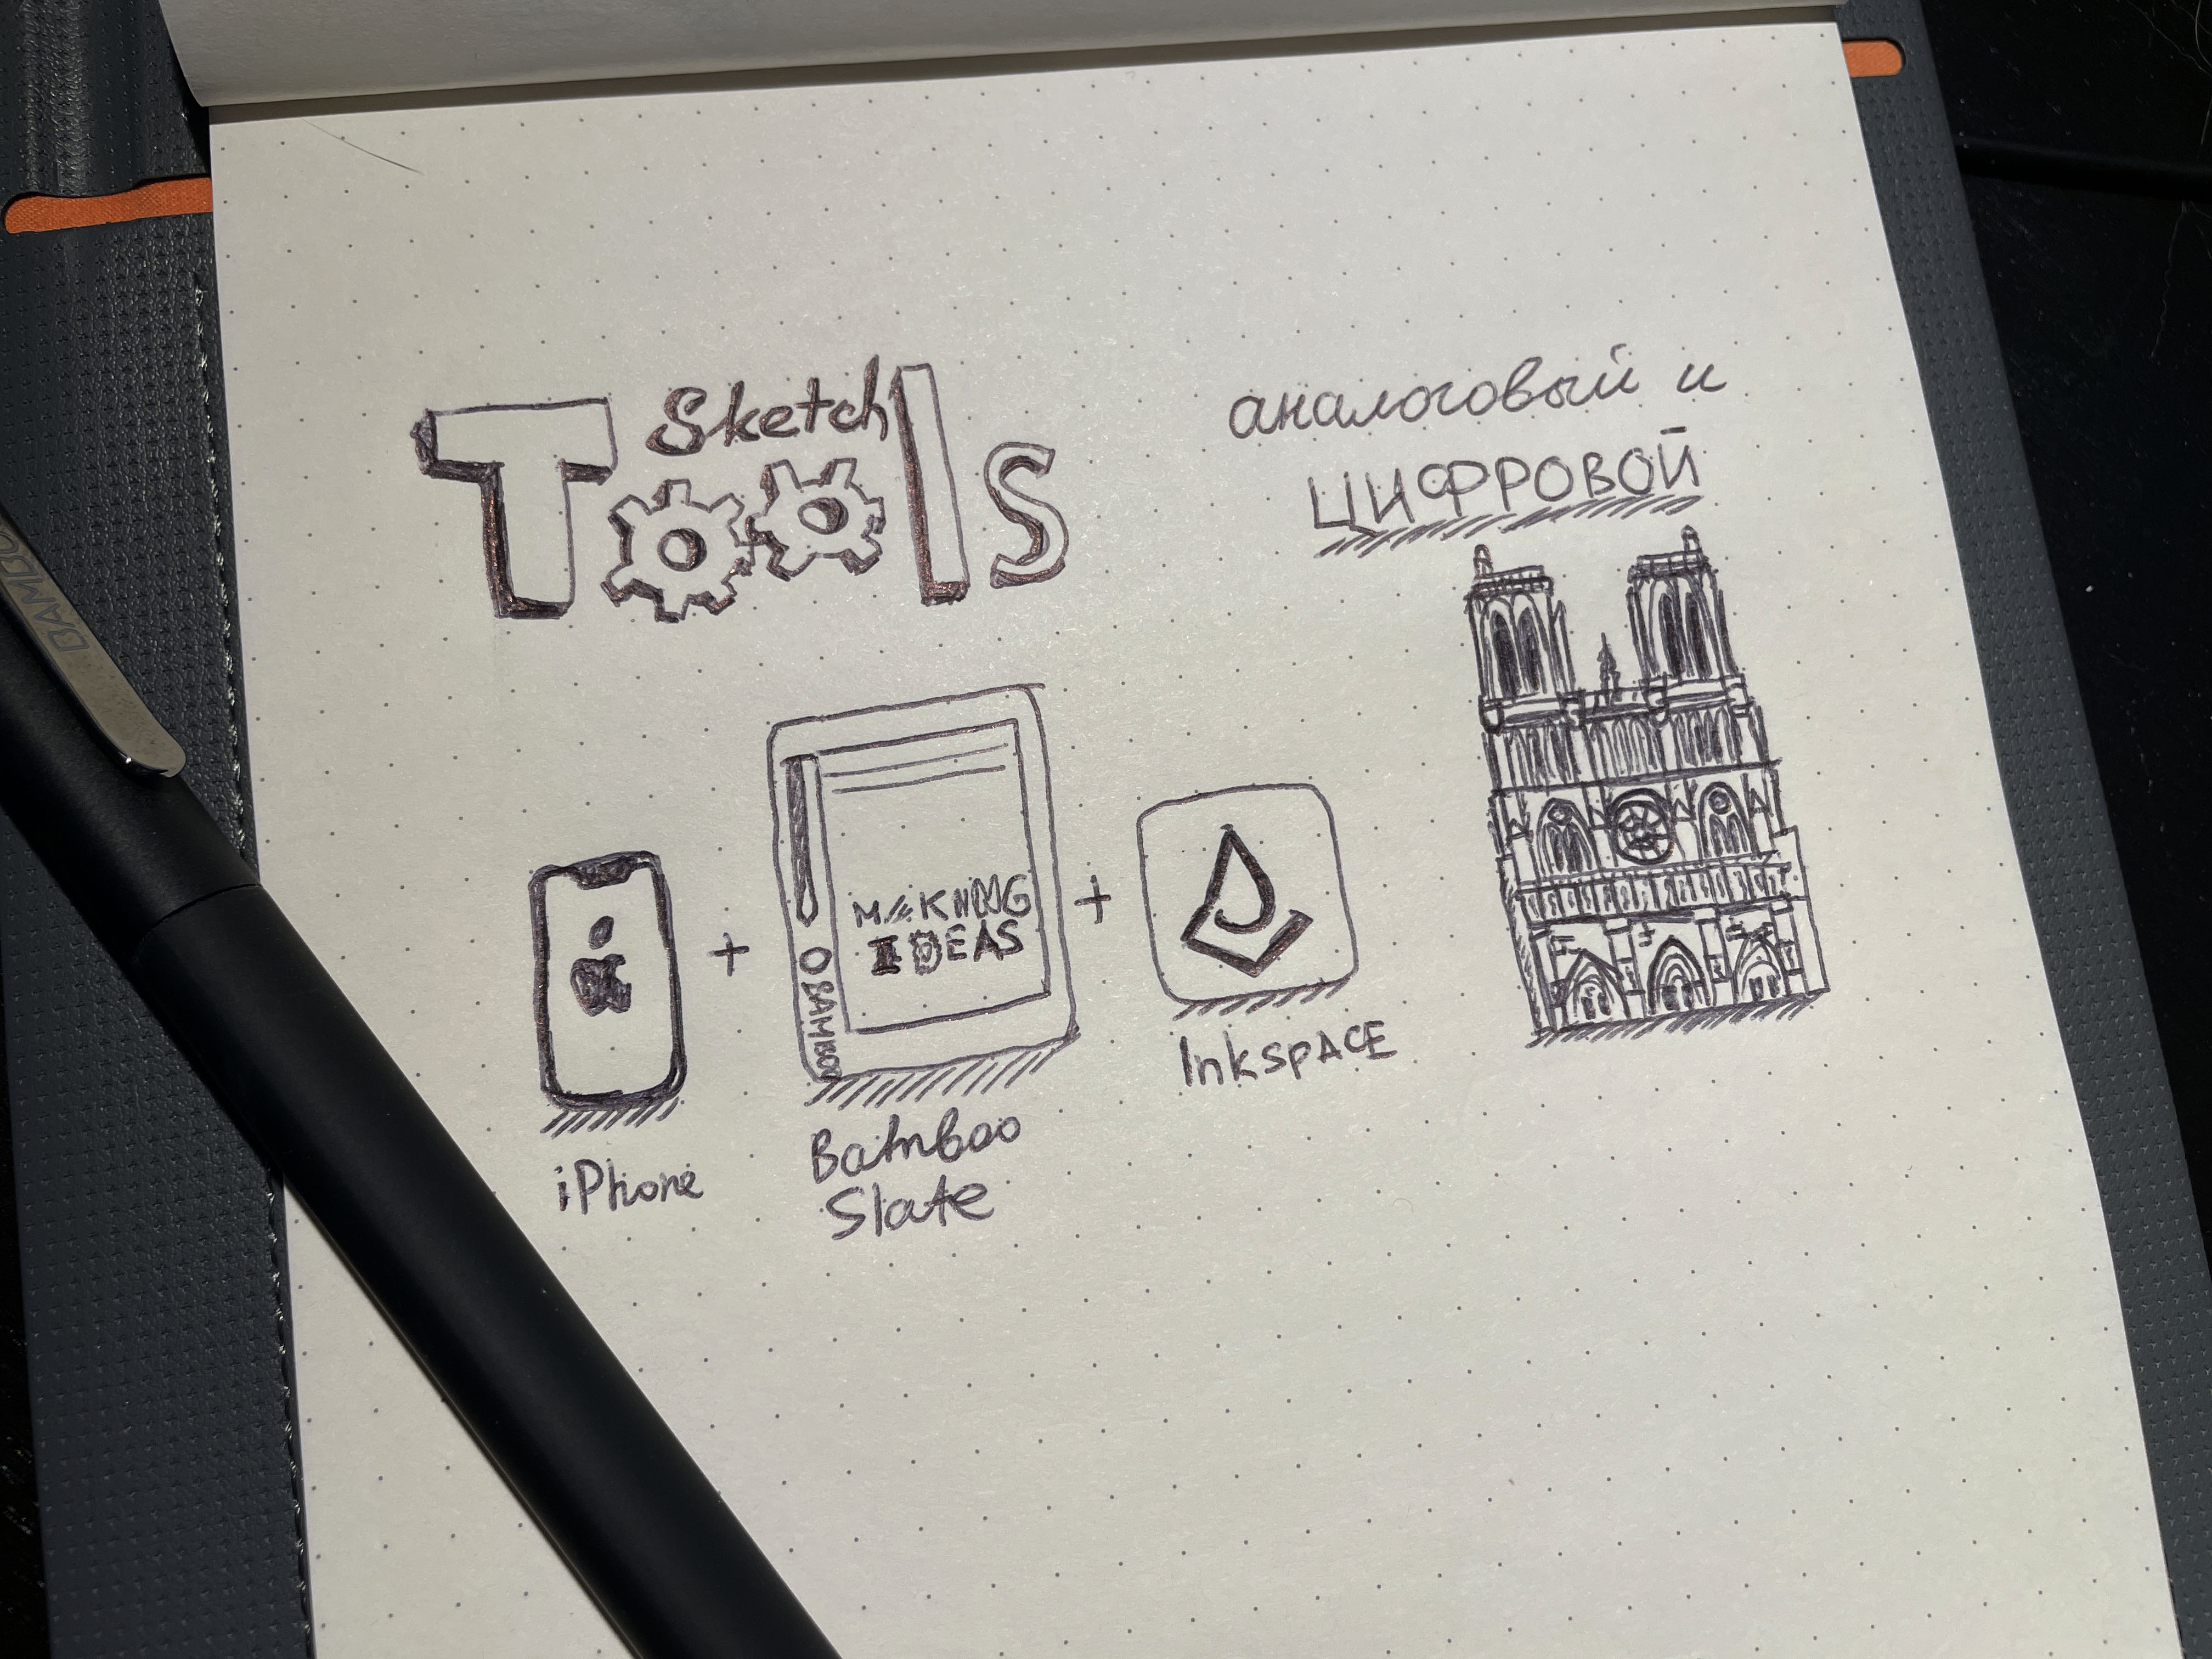 Sketch
Tools
аналоговый и
ЦИФРОВОЙ
MAKING
IDEAS
BAMBOO
+
+
iPhone
Bamboo
Slate
InkspACE
BAMBO